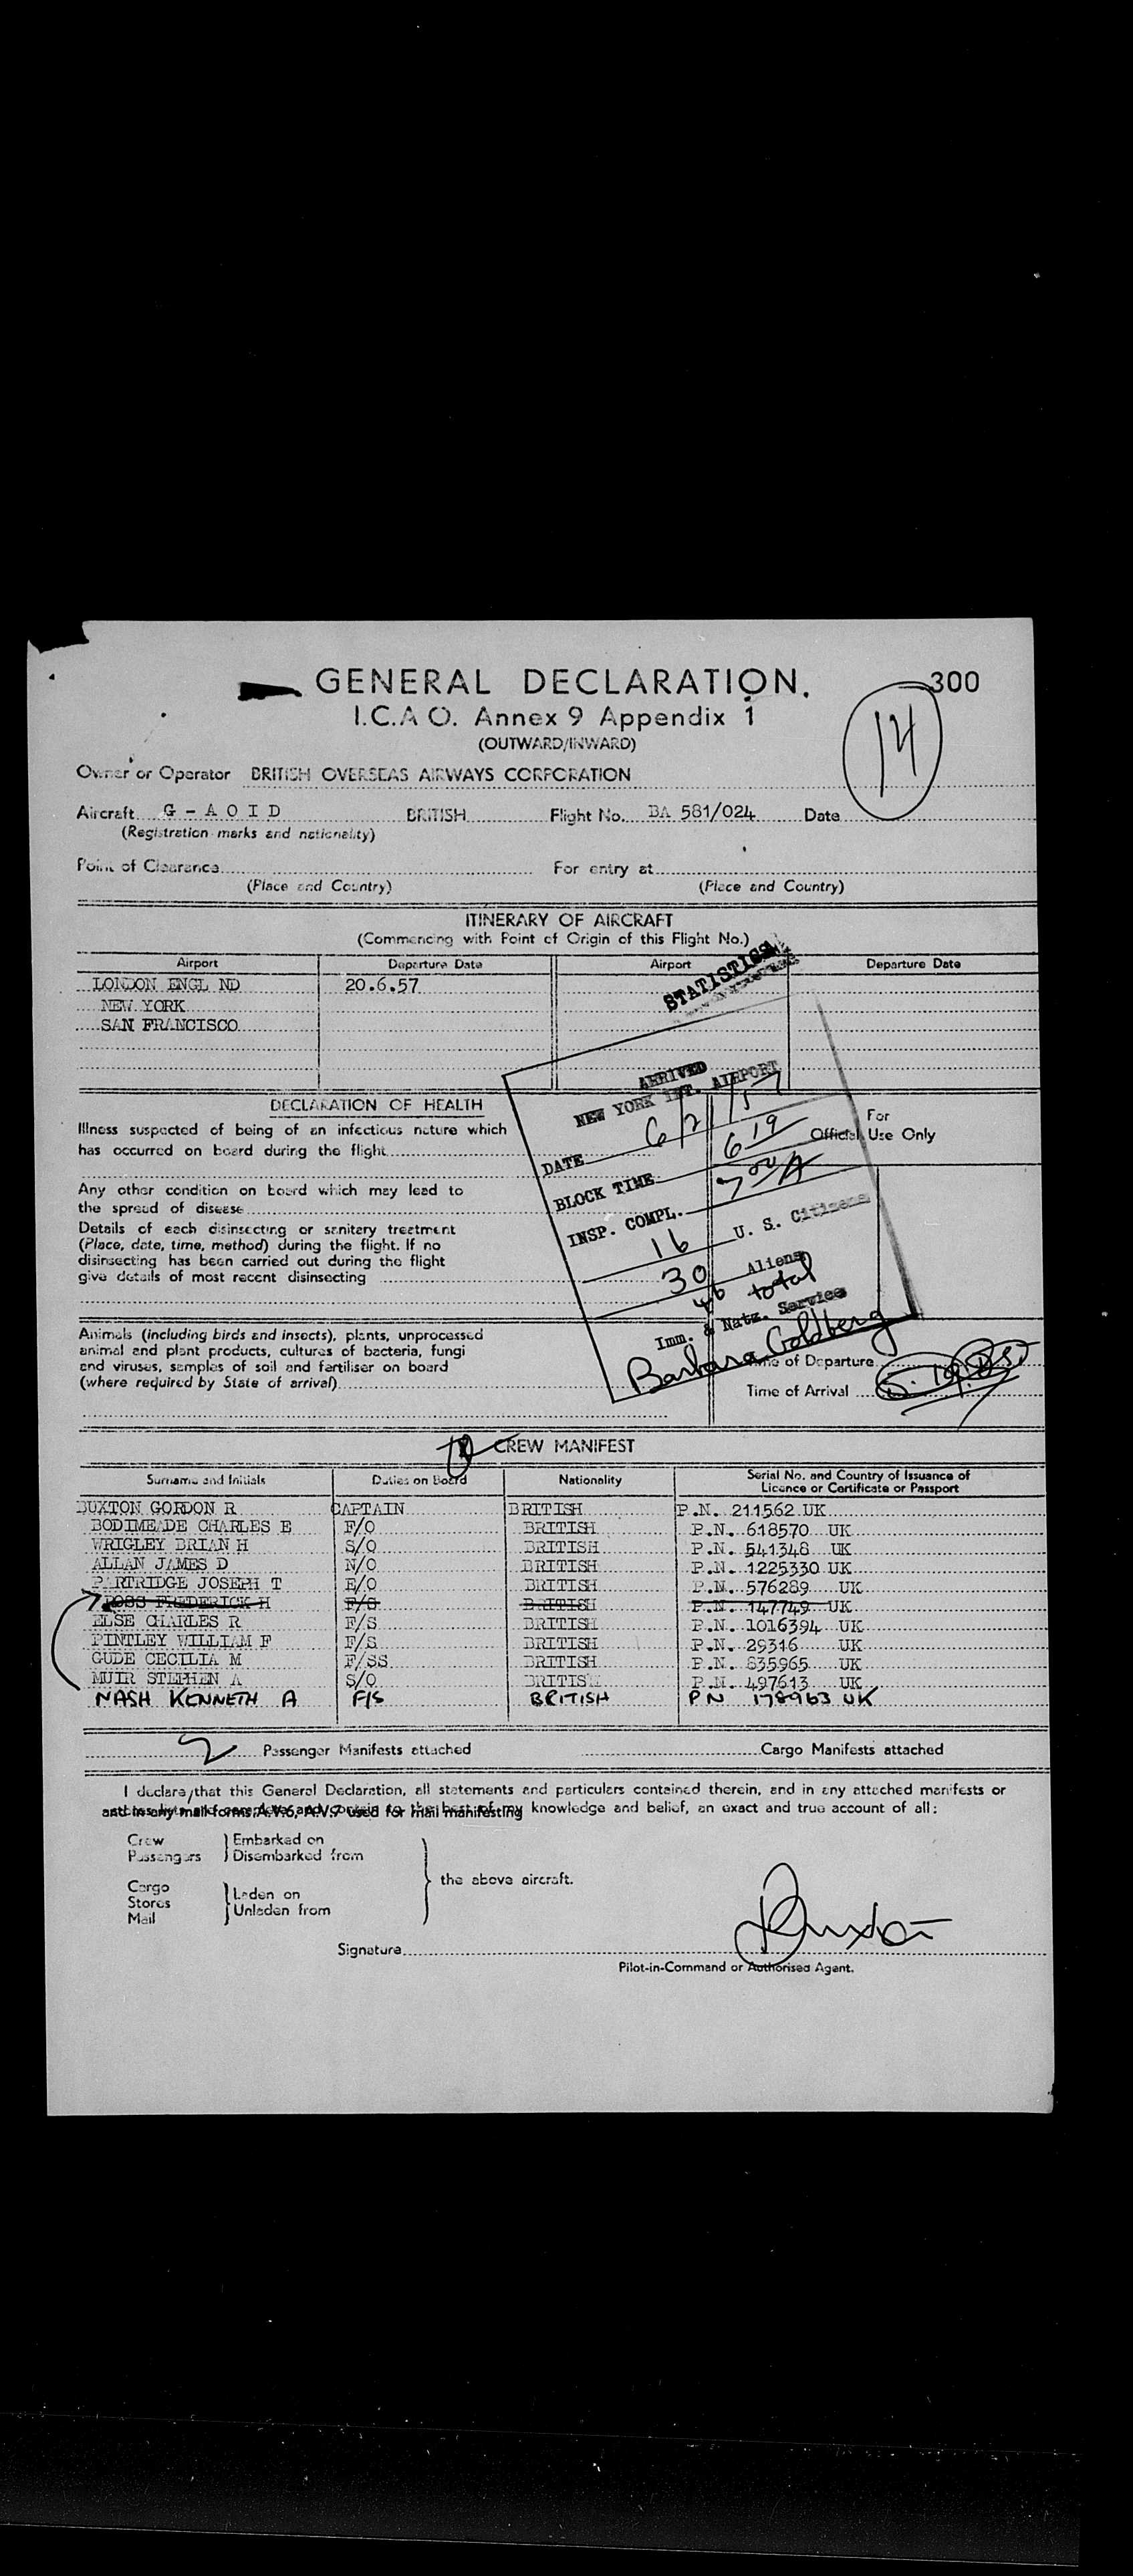 GENERAL DECLARATION.
300
I.C.A.O. Annex 9 Appendix 1
14
(OUTWARD/INWARD)
Owner or Operator BRITISH OVERSEAS AIRWAYS CORPORATION
Aircraft G - A O I D BRITISH Flight No. BA 581/024 Date
(Registration marks and nationality)
Point of Clearance For entry at
(Place and Country) (Place and Country)
ITINERARY OF AIRCRAFT
(Commencing with Point of Origin of this Flight No.)
Airport Departure Date Airport Departure Date
LONDON ENGL ND 20.6.57
NEW YORK
SAN FRANCISCO
STATISTICS
ARRIVED
NEW YORK INT. AIRPORT
DATE 6/21/57
BLOCK TIME 619
INSP. COMPL. 700A
16 U. S. Citizens
30 Aliens
46 total
Imm. & Natz. Service
Barbara Goldberg
DECLARATION OF HEALTH
For
Official Use Only
Illness suspected of being of an infectious nature which
has occurred on board during the flight
Any other condition on board which may lead to
the spread of disease
Details of each disinsecting or sanitary treatment
(Place, date, time, method) during the flight. If no
disinsecting has been carried out during the flight
give details of most recent disinsecting
Animals (including birds and insects), plants, unprocessed
animal and plant products, cultures of bacteria, fungi
and viruses, samples of soil and fertiliser on board
(where required by State of arrival)
of Departure
Time of Arrival
CREW MANIFEST
Surname and Initials Duties on Board Nationality Serial No. and Country of Issuance of
Licence or Certificate or Passport
BUXTON GORDON R CAPTAIN BRITISH P.N. 211562 UK
BODIMEADE CHARLES E F/O BRITISH P.N. 618570 UK
WRIGLEY BRIAN H S/O BRITISH P.N. 541348 UK
ALLAN JAMES D N/O BRITISH P.N. 1225330 UK
PARTRIDGE JOSEPH T E/O BRITISH P.N. 576289 UK
ROSS FREDERICK H F/S BRITISH P.N. 147749 UK
ELSE CHARLES R F/S BRITISH P.N. 1016394 UK
PINTLEY WILLIAM F F/S BRITISH P.N. 29316 UK
GUDE CECILIA M F/SS BRITISH P.N. 835965 UK
MUIR STEPHEN A S/O BRITISH P.N. 497613 UK
NASH KENNETH A F/S BRITISH PN 178963 UK
2 Passenger Manifests attached Cargo Manifests attached
I declare that this General Declaration, all statements and particulars contained therein, and in any attached manifests or
and in any mail forms, A.V.6, A.V.7 used for mail manifesting knowledge and belief, an exact and true account of all:
Crew Embarked on
Passengers Disembarked from
the above aircraft.
Cargo Laden on
Stores Unladen from
Mail
Buxton
Signature
Pilot-in-Command or Authorised Agent.